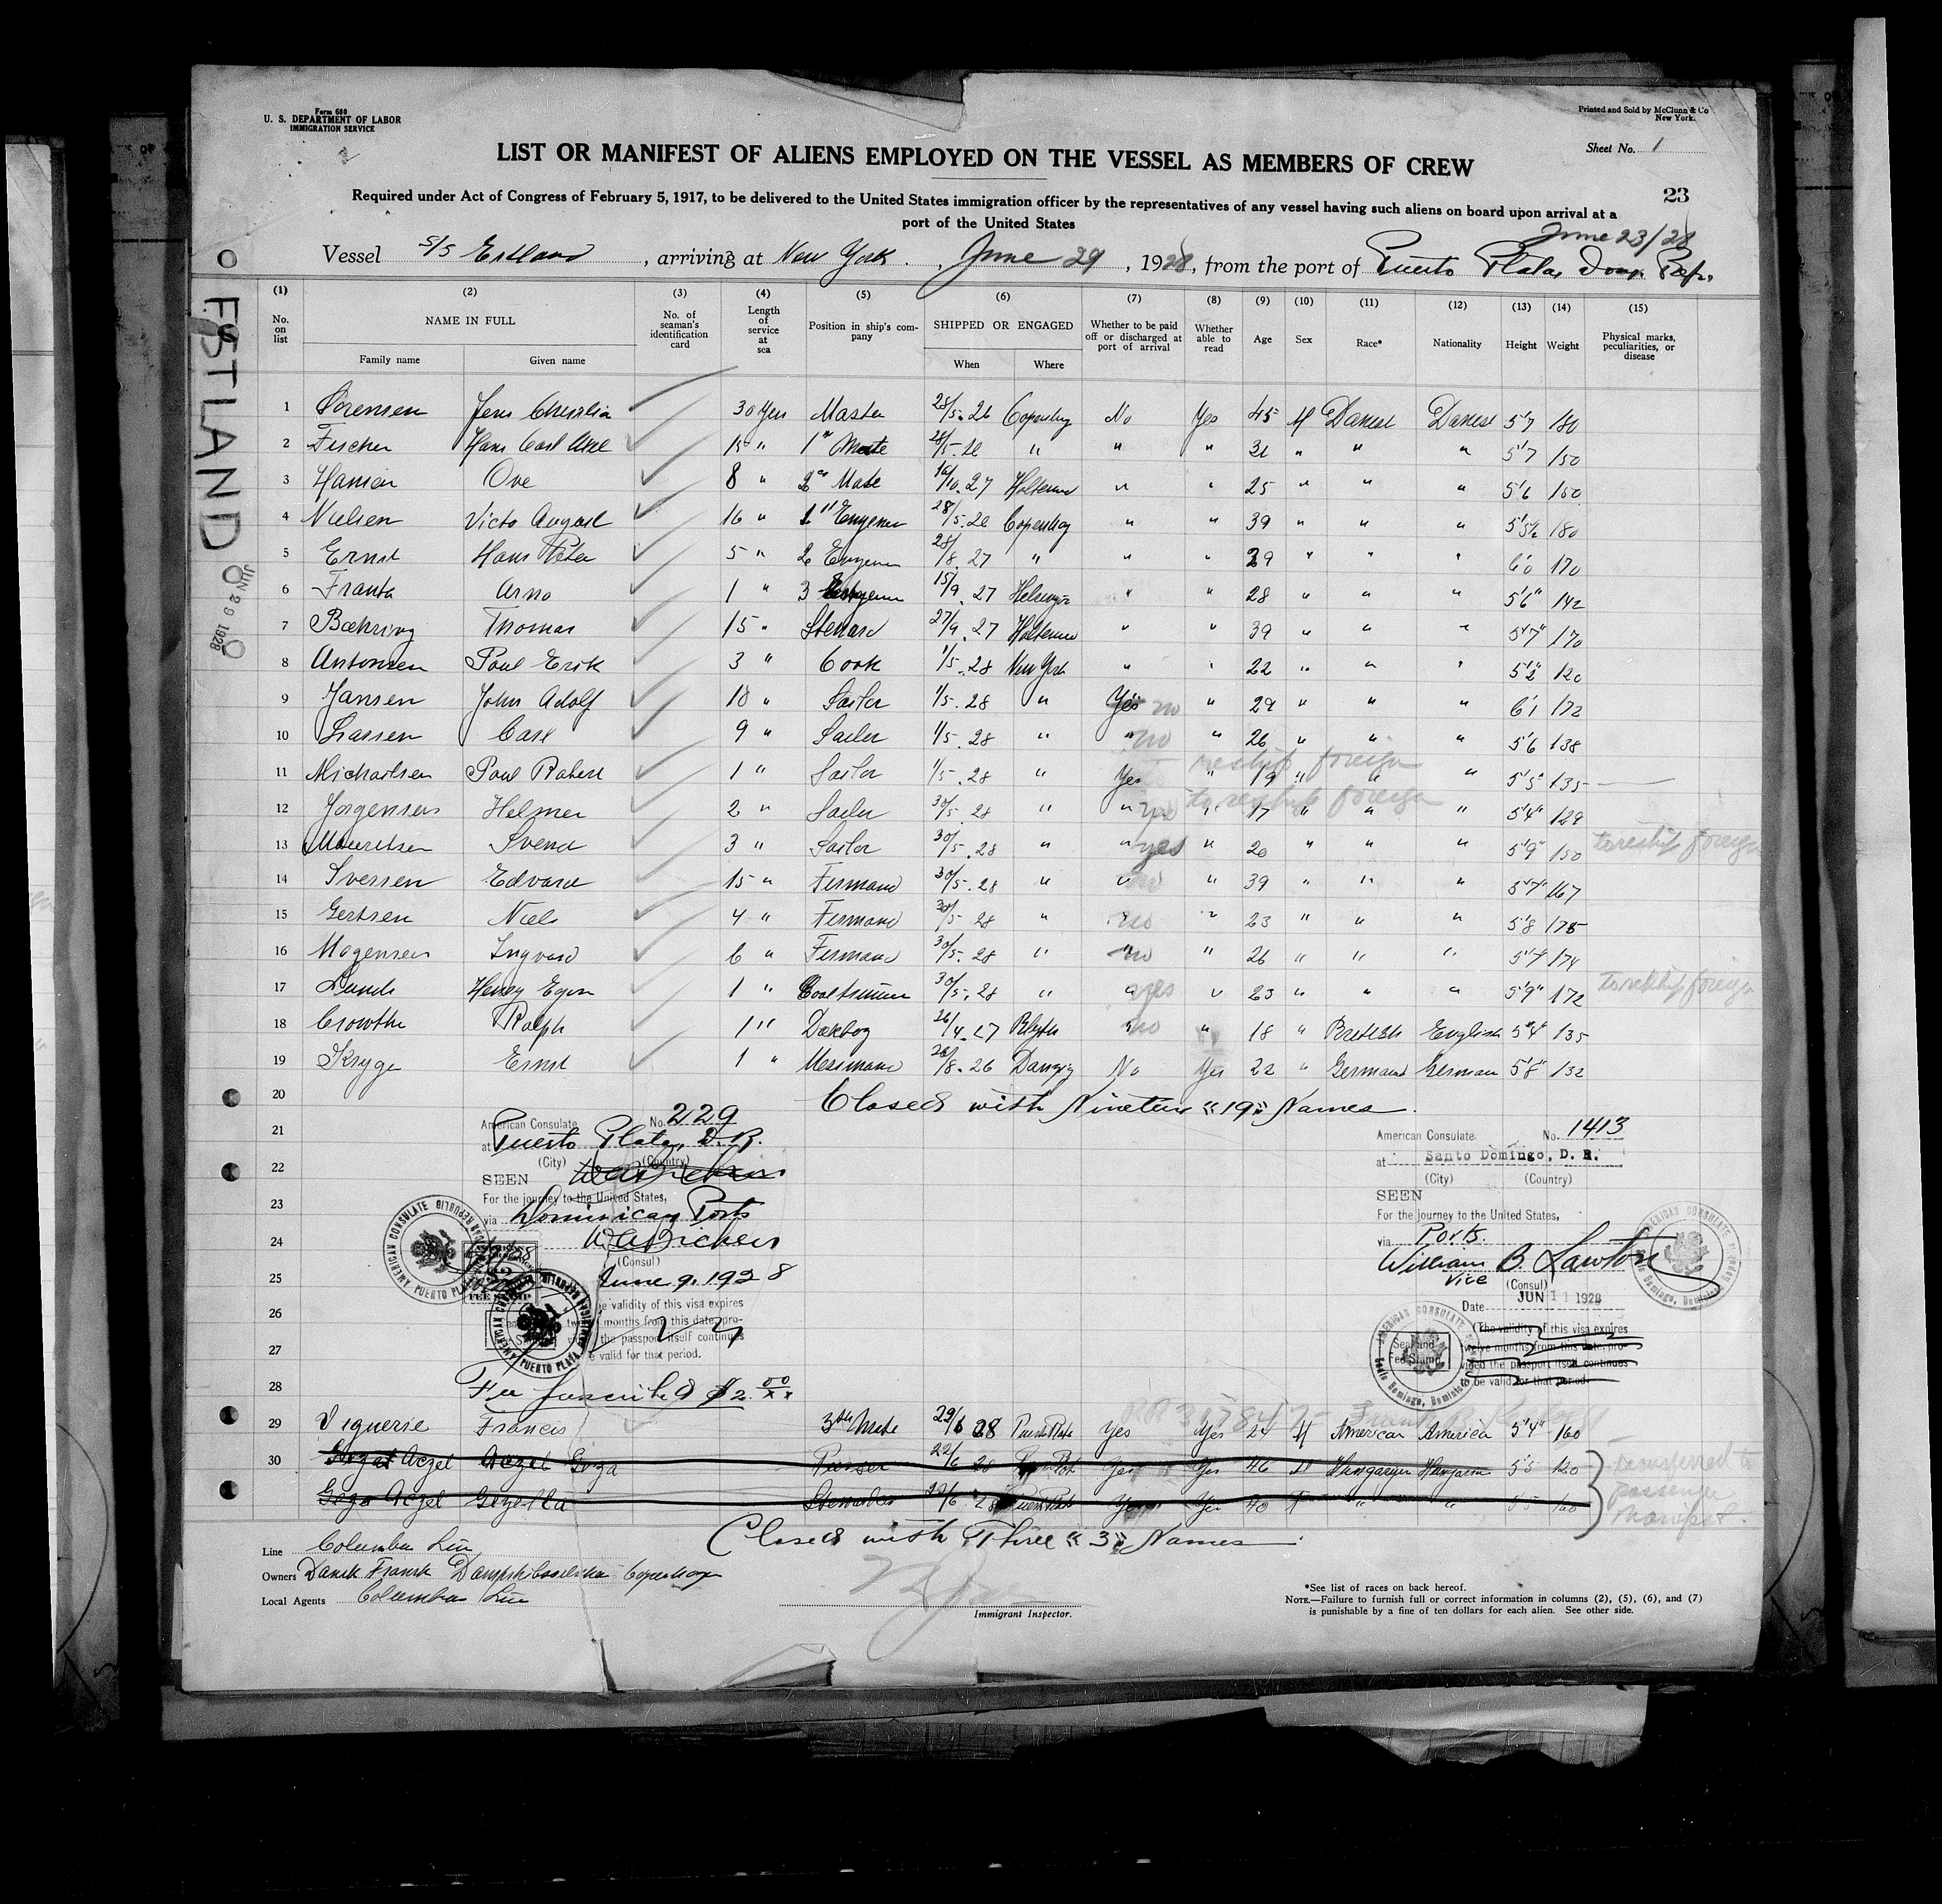 Form 680
U. S. DEPARTMENT OF LABOR
IMMIGRATION SERVICE
Printed and Sold by McClunn & Co
New York.
Sheet No. 1
LIST OR MANIFEST OF ALIENS EMPLOYED ON THE VESSEL AS MEMBERS OF CREW
23
Required under Act of Congress of February 5, 1917, to be delivered to the United States immigration officer by the representatives of any vessel having such aliens on board upon arrival at a
port of the United States
June 23/28
Vessel S/S Estland, arriving at New York, June 29, 1928, from the port of Puerto Plata, Dom. Rep.
ESTLAND
JUN 29 1928
(1) (2) (3) (4) (5) (6) (7) (8) (9) (10) (11) (12) (13) (14) (15)
No. on list NAME IN FULL No. of seaman's identification card Length of service at sea Position in ship's company SHIPPED OR ENGAGED Whether to be paid off or discharged at port of arrival Whether able to read Age Sex Race* Nationality Height Weight Physical marks, peculiarities, or disease
Family name Given name When Where
1 Sorensen Jens 30 yrs Master 28/5. 26 No Yes 45 M Danish Danish 5'7 180
2 Fischer Hans Carl Axel 15 " 1st Mate " " " 31 " " " 5'7 150
3 Hansen Ove 8 " 2nd Mate 16/10. 27 Holtenau " " 25 " " " 5'6 150
4 Nielsen 16 " " " 39 " " " 5'5½ 180
5 Ernst Hans Peter 5 " 2 28/8. 27 " " " 29 " " " 6'0 170
6 Arno 1 " 3 15/9. 27 " " 28 " " " 5'6" 142
7 Thomas 15 " Steward 27/9. 27 Holtenau " " 39 " " " 5'7" 170
8 Antonsen Poul Erik 3 " Cook 1/5. 28 New York " " 22 " " " 5'2" 120
9 Jansen John Adolf 10 " Sailor 1/5. 28 " Yes no " 29 " " " 6'1 172
10 Lassen Carl 9 " Sailor 1/5. 28 " " no " 26 " " " 5'6 138
11 Michaelsen Poul Robert 1 " Sailor 1/5. 28 " Yes reship foreign " 19 " " " 5'5" 135
12 Jorgensen Helmer 2 " Sailor 30/5. 28 " " yes to reship foreign " 17 " " " 5'4" 129
13 Mouritsen Svend 3 " Sailor 30/5. 28 " " yes " 20 " " " 5'9" 150 to reship foreign
14 Iversen Edvard 15 " 30/5. 28 " " no " 39 " " " 5'7" 167
15 Gertsen Niels 4 " 30/5 28 " " no " 23 " " " 5'8 175
16 Mogensen Ingvard 6 " 30/5. 28 " " no " 26 " " " 174
17 Lund Henry Egon 1 " 30/5. 28 " " yes " 23 " " " 5'9" 172 to reship foreign
18 Ralph 1 " 26/4. 27 Blyth " no " 18 " British English 5'4" 135
19 Ernst 1 " Messman 28/8. 26 Danzig No Yes 22 " German German 5'8" 132
20 Closed with Nineteen "19" Names.
21
22
23
24
25
26
27
28
American Consulate No. 229
at Puerto Plata, D. R.
(City) (Country)
SEEN
For the journey to the United States,
via Dominican Ports
W. A. Bickers
(Consul)
June 9, 1928
e validity of this visa expires
twe months from this date, pro-
the passport itself continues
e valid for that period.
AMERICAN CONSULATE PUERTO PLATA
FEE STAMP
Fee prescribed $2.00
American Consulate No. 1413
at Santo Domingo, D. R.
(City) (Country)
SEEN
For the journey to the United States,
via Ports.
William B. Lawton
Vice (Consul)
Date JUN 11 1928
(The validity of this visa expires
twelve months from this date, pro-
vided the passport itself continues
to be valid for that period.
Seal and
Fee Stamp
AMERICAN CONSULATE
Santo Domingo, Dominican Republic
29 Viguerie Francis 3th Mate 28 Yes Yes 24 M American America 5'4" 160
30 Aczel Geza Purser 22/6 28 Yes Yes 46 5'5 120
Aczel Gizella Stewardess 22/6 28 Yes Yes 40 F " " 5'5 160
transferred to
passenger
Manifest.
Closed with Three "3" Names.
Line Columbus Line
Owners Dansk Fransk Dampskibsselskab Copenhagen
Local Agents Columbus Line
Immigrant Inspector.
*See list of races on back hereof.
NOTE.—Failure to furnish full or correct information in columns (2), (5), (6), and (7)
is punishable by a fine of ten dollars for each alien. See other side.